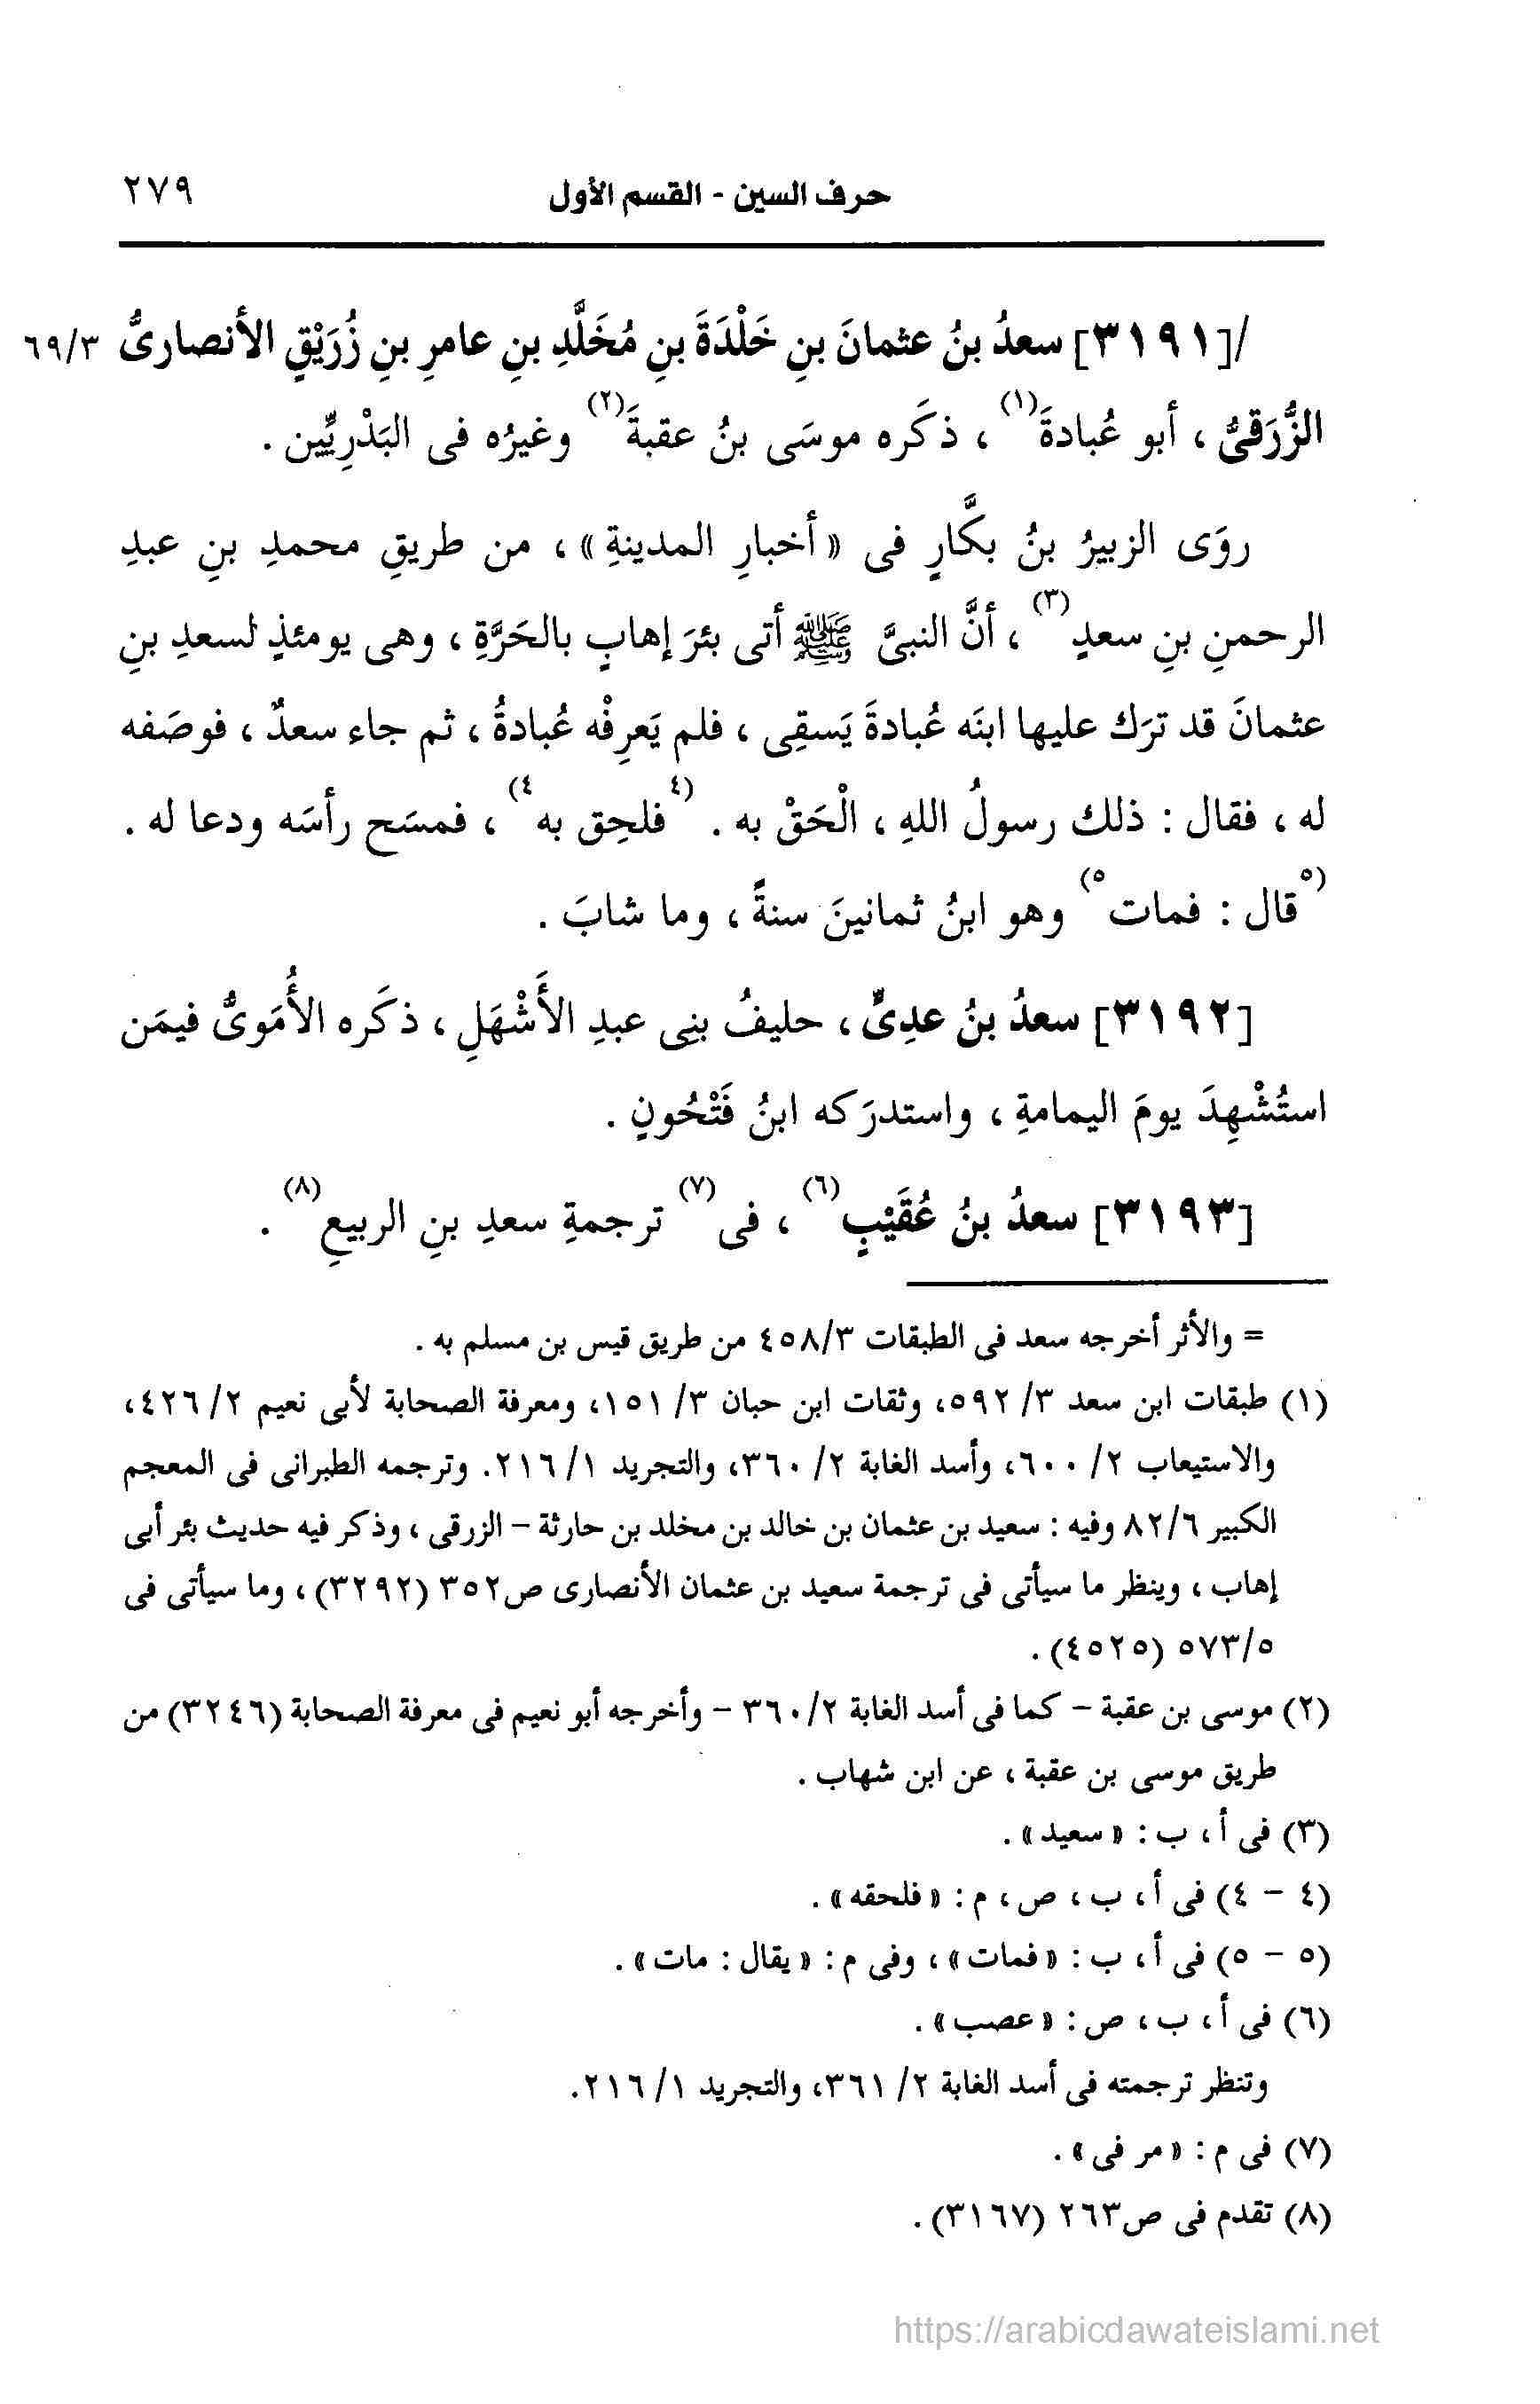 حرف السين - القسم الأول ٢٧٩
/[٣١٩١] سعدُ بنُ عثمانَ بنِ خَلْدَةَ بنِ مُخَلَّدِ بنِ عامرِ بنِ زُرَيْقٍ الأنصاریُّ ٦٩/٣
الزُّرَقیُّ ، أبو عُبادةَ(١) ، ذكَره موسَى بنُ عقبةَ(٢) وغيرُه فى البَدْرِيِّين .
روَى الزبيرُ بنُ بكَّارٍ فى « أخبارِ المدينةِ » ، من طريقِ محمدِ بنِ عبدِ
الرحمنِ بنِ سعدٍ(٣) ، أنَّ النبىَّ ﷺ أتى بئرَ إهابٍ بالحَرَّةِ ، وهى يومئذٍ لسعدِ بنِ
عثمانَ قد ترَك عليها ابنَه عُبادةَ يَسقِى ، فلم يَعرِفْه عُبادةُ ، ثم جاء سعدٌ ، فوصَفه
له ، فقال : ذلك رسولُ اللهِ ، الْحَقْ به . (٤فلحِق به٤) ، فمسَح رأسَه ودعا له .
(٥قال : فمات٥) وهو ابنُ ثمانينَ سنةً ، وما شابَ .
[٣١٩٢] سعدُ بنُ عدِىٍّ ، حليفُ بنِى عبدِ الأَشْهَلِ ، ذكَره الأُمَوىُّ فيمَن
استُشْهِدَ يومَ اليمامةِ ، واستدرَكه ابنُ فَتْحُونٍ .
[٣١٩٣] سعدُ بنُ عُقَيْبٍ(٦) ، فى(٧) ترجمةِ سعدِ بنِ الربيعِ(٨) .
= والأثر أخرجه سعد فى الطبقات ٤٥٨/٣ من طريق قيس بن مسلم به .
(١) طبقات ابن سعد ٣/ ٥٩٢، وثقات ابن حبان ٣/ ١٥١، ومعرفة الصحابة لأبى نعيم ٢/ ٤٢٦،
والاستيعاب ٢/ ٦٠٠، وأسد الغابة ٢/ ٣٦٠، والتجريد ١/ ٢١٦. وترجمه الطبرانى فى المعجم
الكبير ٨٢/٦ وفيه : سعيد بن عثمان بن خالد بن مخلد بن حارثة - الزرقى ، وذكر فيه حديث بئر أبى
إهاب ، وينظر ما سيأتى فى ترجمة سعيد بن عثمان الأنصارى ص٣٥٢ (٣٢٩٢) ، وما سيأتى فى
٥٧٣/٥ (٤٥٢٥) .
(٢) موسى بن عقبة - كما فى أسد الغابة ٣٦٠/٢ - وأخرجه أبو نعيم فى معرفة الصحابة (٣٢٤٦) من
طريق موسى بن عقبة ، عن ابن شهاب .
(٣) فى أ ، ب : « سعيد » .
(٤ - ٤) فى أ ، ب ، ص ، م : « فلحقه » .
(٥ - ٥) فى أ ، ب : « فمات » ، وفى م : « يقال : مات » .
(٦) فى أ ، ب ، ص : « عصب » .
وتنظر ترجمته فى أسد الغابة ٢/ ٣٦١، والتجريد ١/ ٢١٦.
(٧) فى م : « مر فى » .
(٨) تقدم فى ص٢٦٣ (٣١٦٧) .
https://arabicdawateislami.net